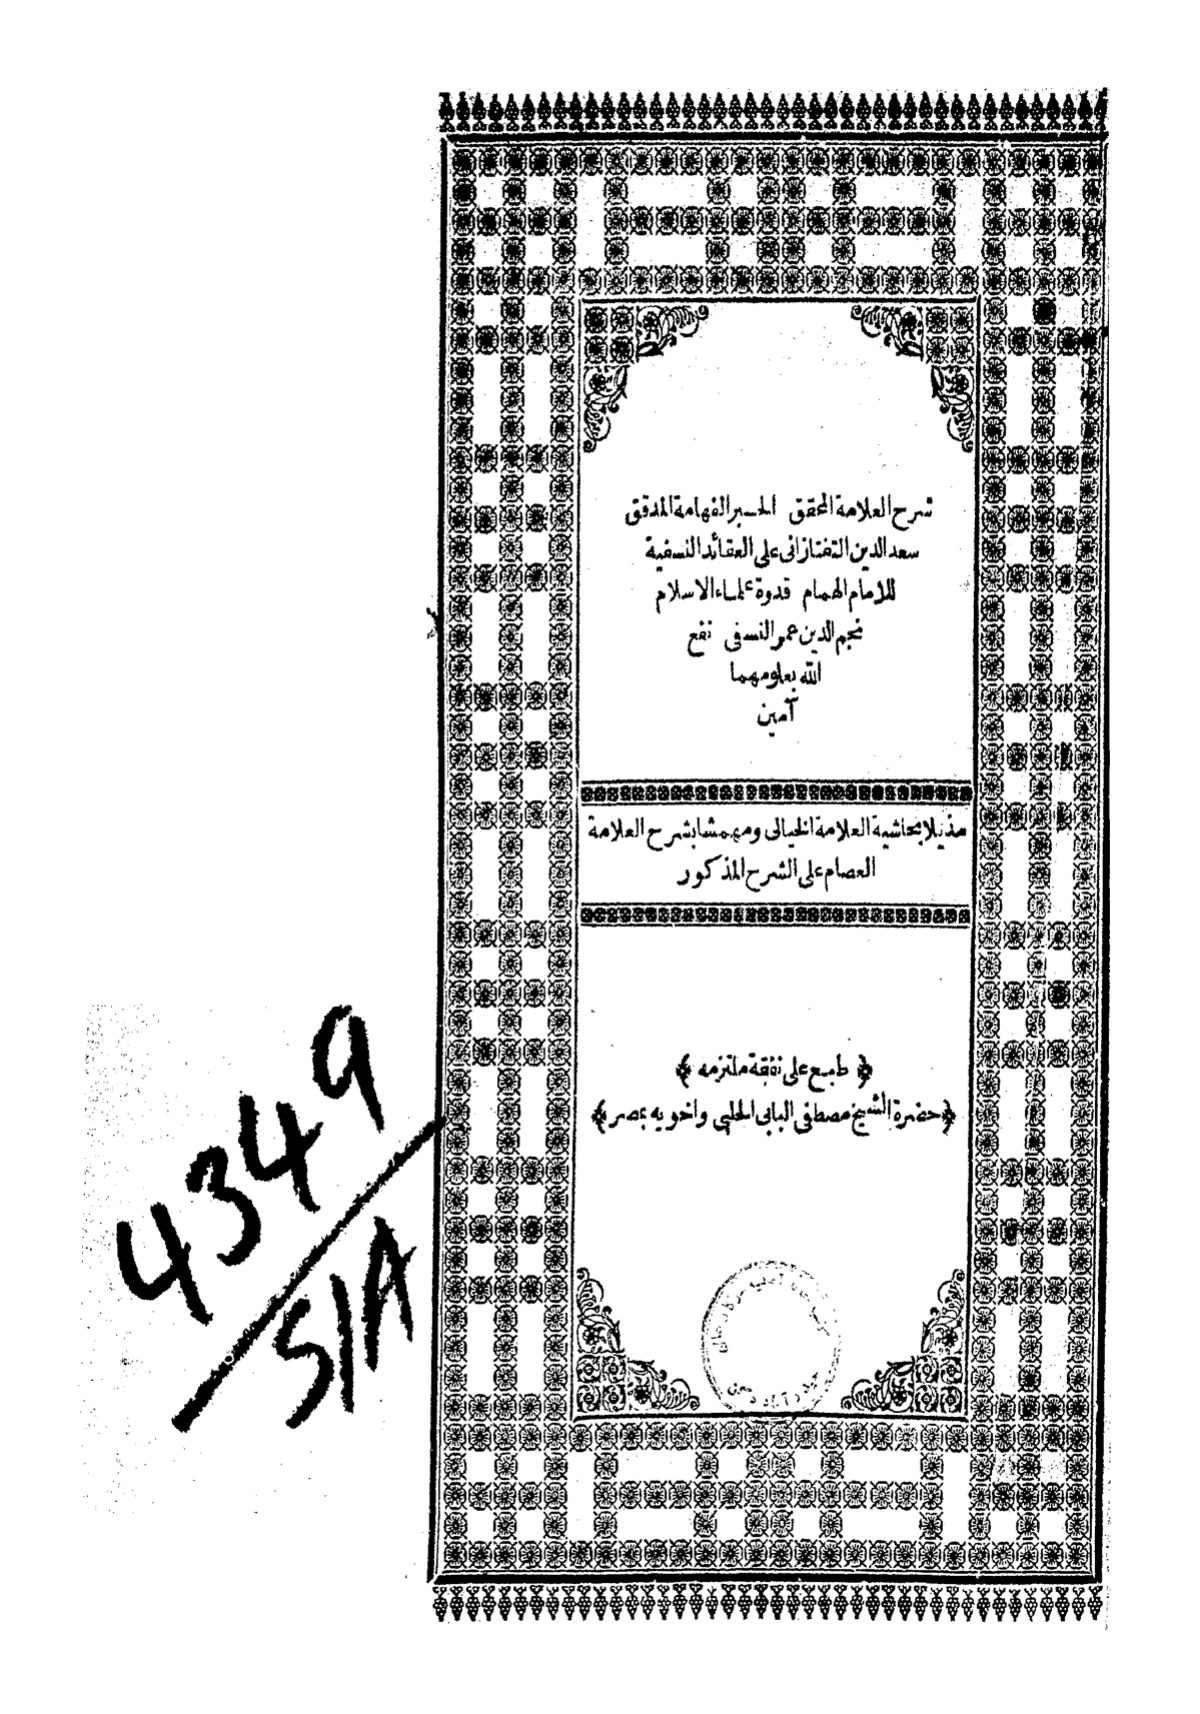 شرح العلامة المحقق الحبر الفهامة المدقق
سعد الدين التفتازانى على العقائد النسفية
للامام الهمام قدوة علماء الاسلام
نجم الدين عمر النسفى نفع
الله بعلومهما
آمين
مذيلا بحاشية العلامة الخيالى ومهمشا بشرح العلامة
العصام على الشرح المذكور
﴿طبع على نفقة ملتزمه﴾
﴿حضرة الشيخ مصطفى البابى الحلبى واخويه بمصر﴾
4349
51A